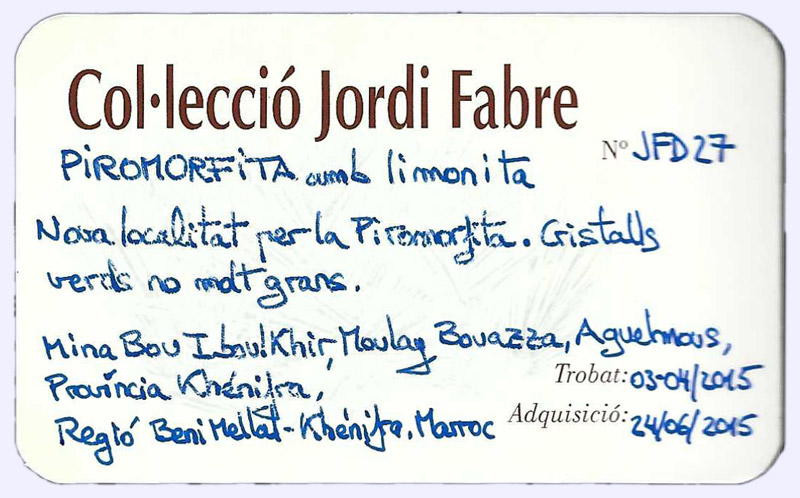 Col·lecció Jordi Fabre
Nº JFD27
PIROMORFITA amb limonita
Nova localitat per la Piromorfita. Cristalls
verds no molt grans.
Mina Bou Iboul Khir, Moulay Bouazza, Aguelmous,
Província Khénifra,
Trobat: 03-04/2015
Regió Beni Mellat-Khénifra, Marroc
Adquisició: 24/06/2015